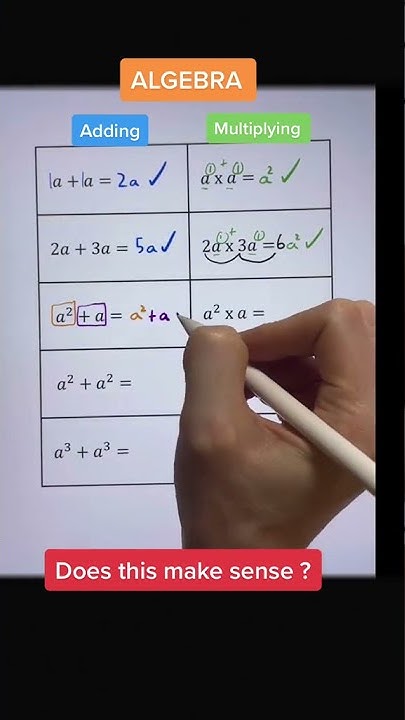 ALGEBRA
Adding
Multiplying
1a + 1a = 2a ✓
a⁽¹⁾ + x a⁽¹⁾ = a² ✓
2a + 3a = 5a ✓
2a⁽¹⁾ + x 3a⁽¹⁾ = 6a² ✓
a² + a = a² + a
a² x a =
a² + a² =
a³ + a³ =
Does this make sense ?